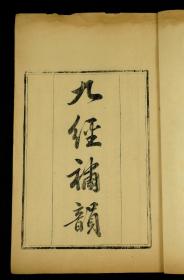 九經補韻